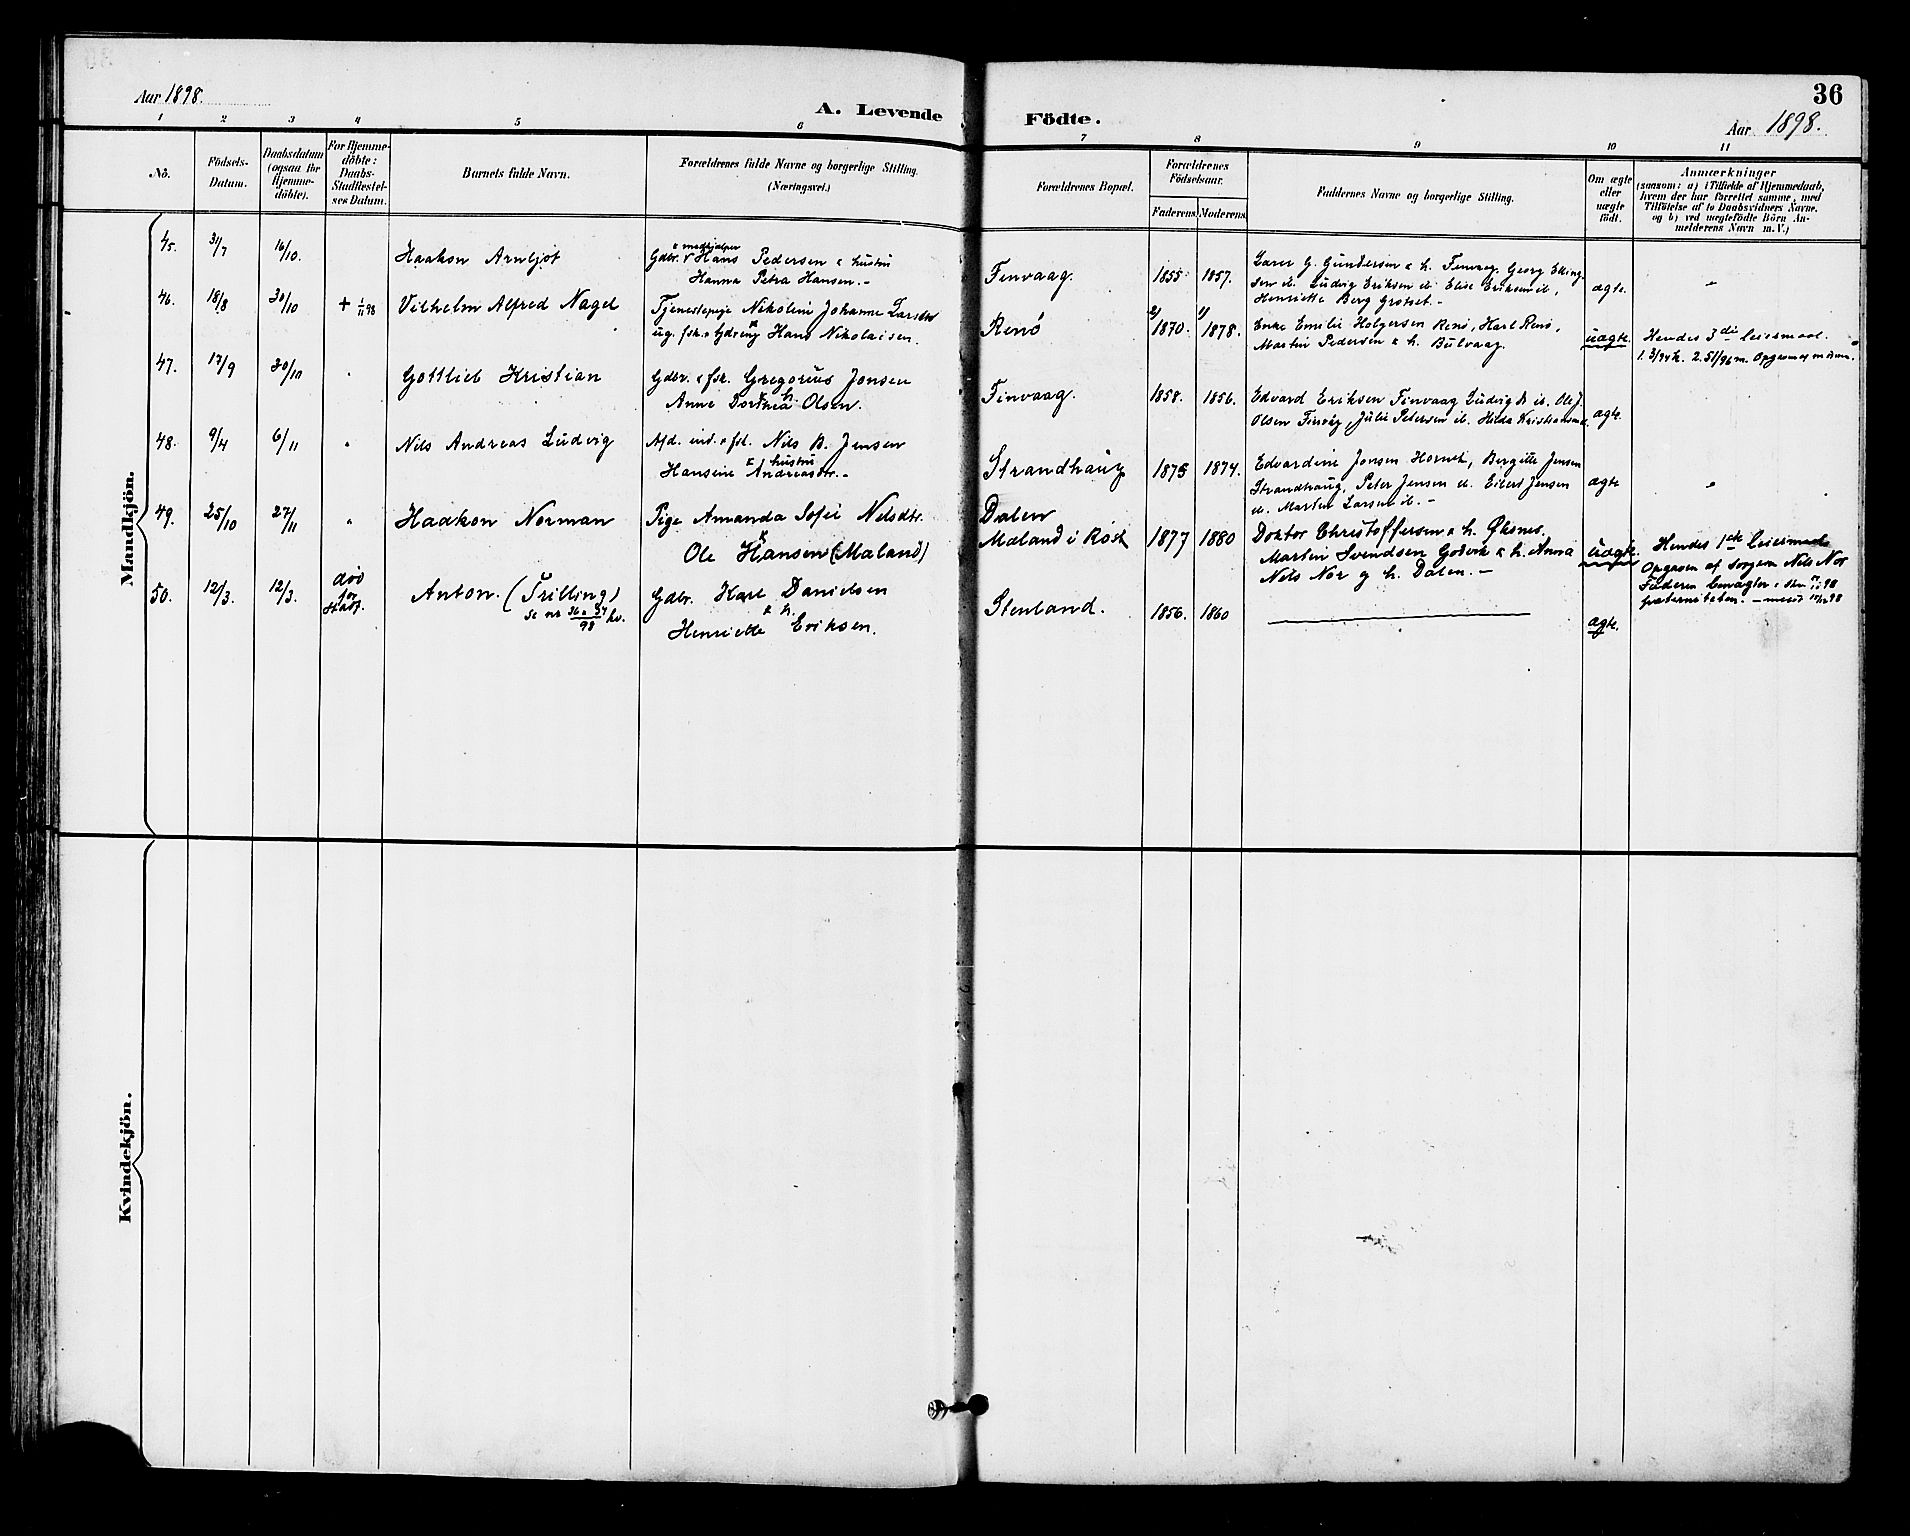 Aar 1898.
A. Levende
Födte.
36
Aar 1898.
1 2 3 4 5 6 7 8 9 10 11
Nô.
Födsels-
Datum.
Daabsdatum
(ogsaa for
Hjemme-
döbte).
For Hjemme-
döbte:
Daabs-
Stadfæstel-
ses Datum.
Barnets fulde Navn.
Forældrenes fulde Navne og borgerlige Stilling.
(Næringsvei.)
Forældrenes Bopæl.
Forældrenes
Födselsaar.
Faderens.
Moderens.
Faddernes Navne og borgerlige Stilling.
Om ægte
eller
uægte
födt.
Anmærkninger
(saasom: a) i Tilfælde af Hjemmedaab,
hvem der har forrettet samme, med
Tilföielse af to Daabsvidners Navne.
og b) ved uægtefödte Börn An-
melderens Navn m. V.)
Mandkjön.
45. 31/7 16/10. Haakon Arnljot
& medhjælper
Gdbr. Hans Pedersen & hustru
Hanna Petra Hansen.-
Finvaag. 1855 1857.
G. Gundersen & h. Finvaag, Georg Elling-
sen d. Ludvig Eriksen d. Elise Eriksen d.,
Henriette Berg Grotset.-
ægte. "
46. 18/8 30/10 + 1/11 98 Vilhelm Alfred Nagel
Tjenestepige Nikoline Johanne Larsdtr
&
ug. fsk. Hans Nikolaisen.
Renö 2) 1870. 1) 1878.
Enke Emilie Holgersen Renö, Karl Renö,
Martin Pedersen & h. Bulvaag.
uægte.
Hendes 3die leiermaal.
47. 17/9 30/10 " Gottlieb Kristian
Gdbr. & fsk. Gregorius Jonsen
& h.
Anne Dorthea Olsen.
Finvaag. 1858. 1856.
Edvard Eriksen Finvaag Ludvig d. Ole J.
Olsen Finvåg, Julie Petersen d. Hilda
ægte.
48. 9/4 6/11 " Nils Andreas Ludvig
ind. & fsk. Nils B. Jensen
& hustru
Hansine Andreasdtr.-
Strandhaug 1875 1874.
Edvardine Jonsen Bergitte Jensen
Strandhaug, Peter Jensen d. Eibert Jensen
d. Martin Larsen d. -
ægte "
49. 25/10 27/11 " Haakon Norman
Pige Amanda Sofie Nilsdtr.
&
Ole Hansen (Mæland)
Dalen
Mæland i Röst 1877 1880
Doktor Christoffersen & h. Öksnes,
Martin Svendsen Godvik & h. Anna
Nils Nor og h. Dalen. -
uægte.
Hendes 1ste leiermaal
Opgaven af morfaren Nils Nor
Faderen
paterniteten.
50. 12/3. 12/3. död
för
Anton. (Trilling)
se nr 36 & 37/98 kv.
Gdbr. Karl Danielsen
& h.
Henriette Eriksen.
Stenland. 1856. 1860
ægte.
Kvindekjön.